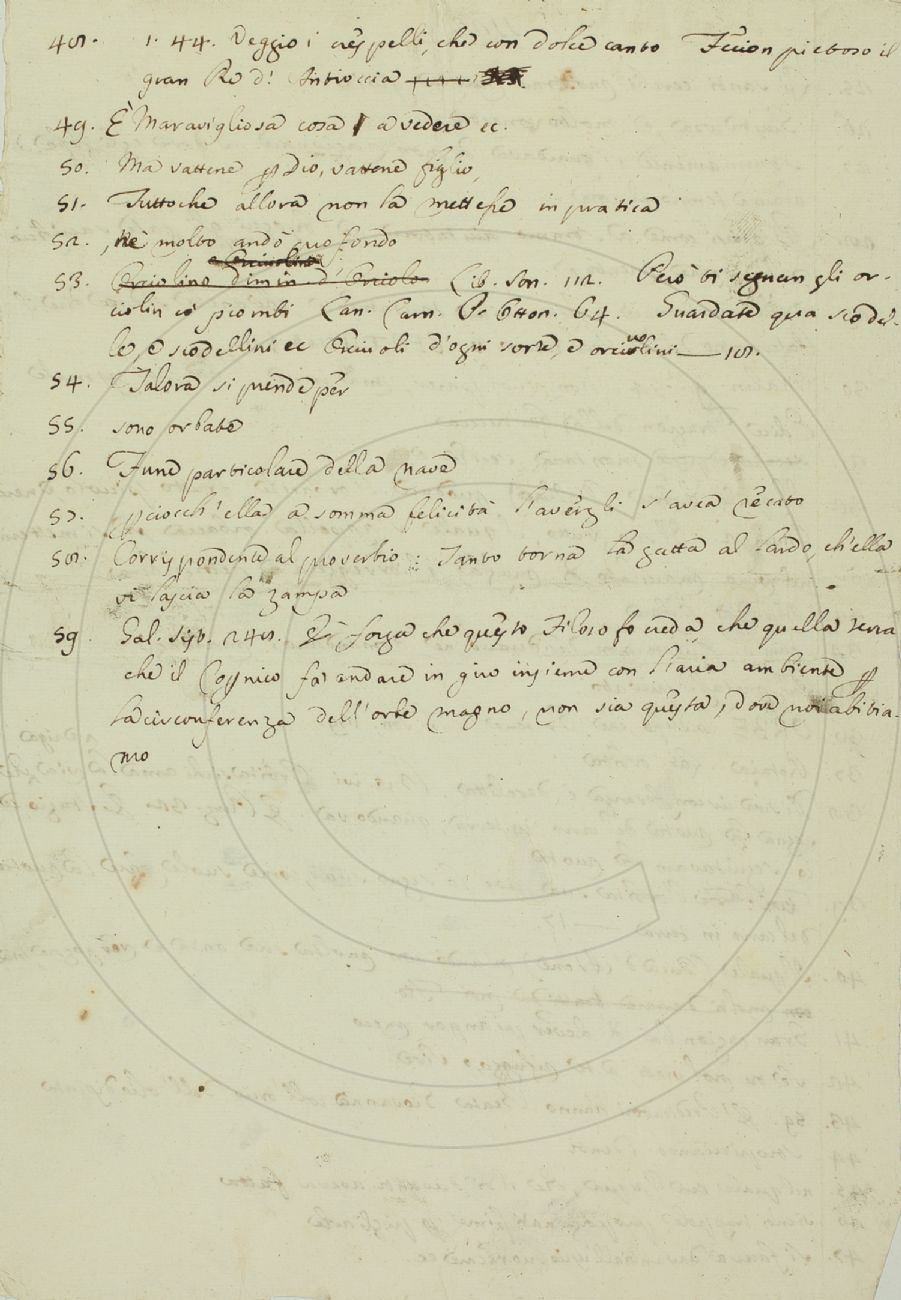 48. 1. 44. Veggio i crespelli, che con dolce canto Fecion pietoso il
gran Re d' Antioccia
49. È Maravigliosa cosa a vedere ec.
50. Ma vattene p Dio, vattene figlio,
51. Tuttoche allora non la mettesse in pratica
52. , Nè molto andò profondo
53. Orciolino dimin. d' Orciolo Lib. Son. 112. Però ti segnan gli or-
ciolin co' piombi Can. Carn. P. Otton. 64. Guardate qua scodel-
le, e scodellini ec Orciuoli d'ogni sorte, e orciuolini — 18.
54. Talora si prende per
55. sono orbate
56. Fune particolare della nave
57. pciocch' ella a somma felicità l'avergli s'avea recato
58. Corrispondente al proverbio : Tanto torna la gatta al lardo, ch'ella
vi lascia la zampa
59. Gal. Sist. 248. È forza che questo Filosofo creda che quella terra
che il Copnico fa andare in giro insieme con l'aria ambiente p
la circonferenza dell'orbe magno, non sia questa, dove noi abitia-
mo